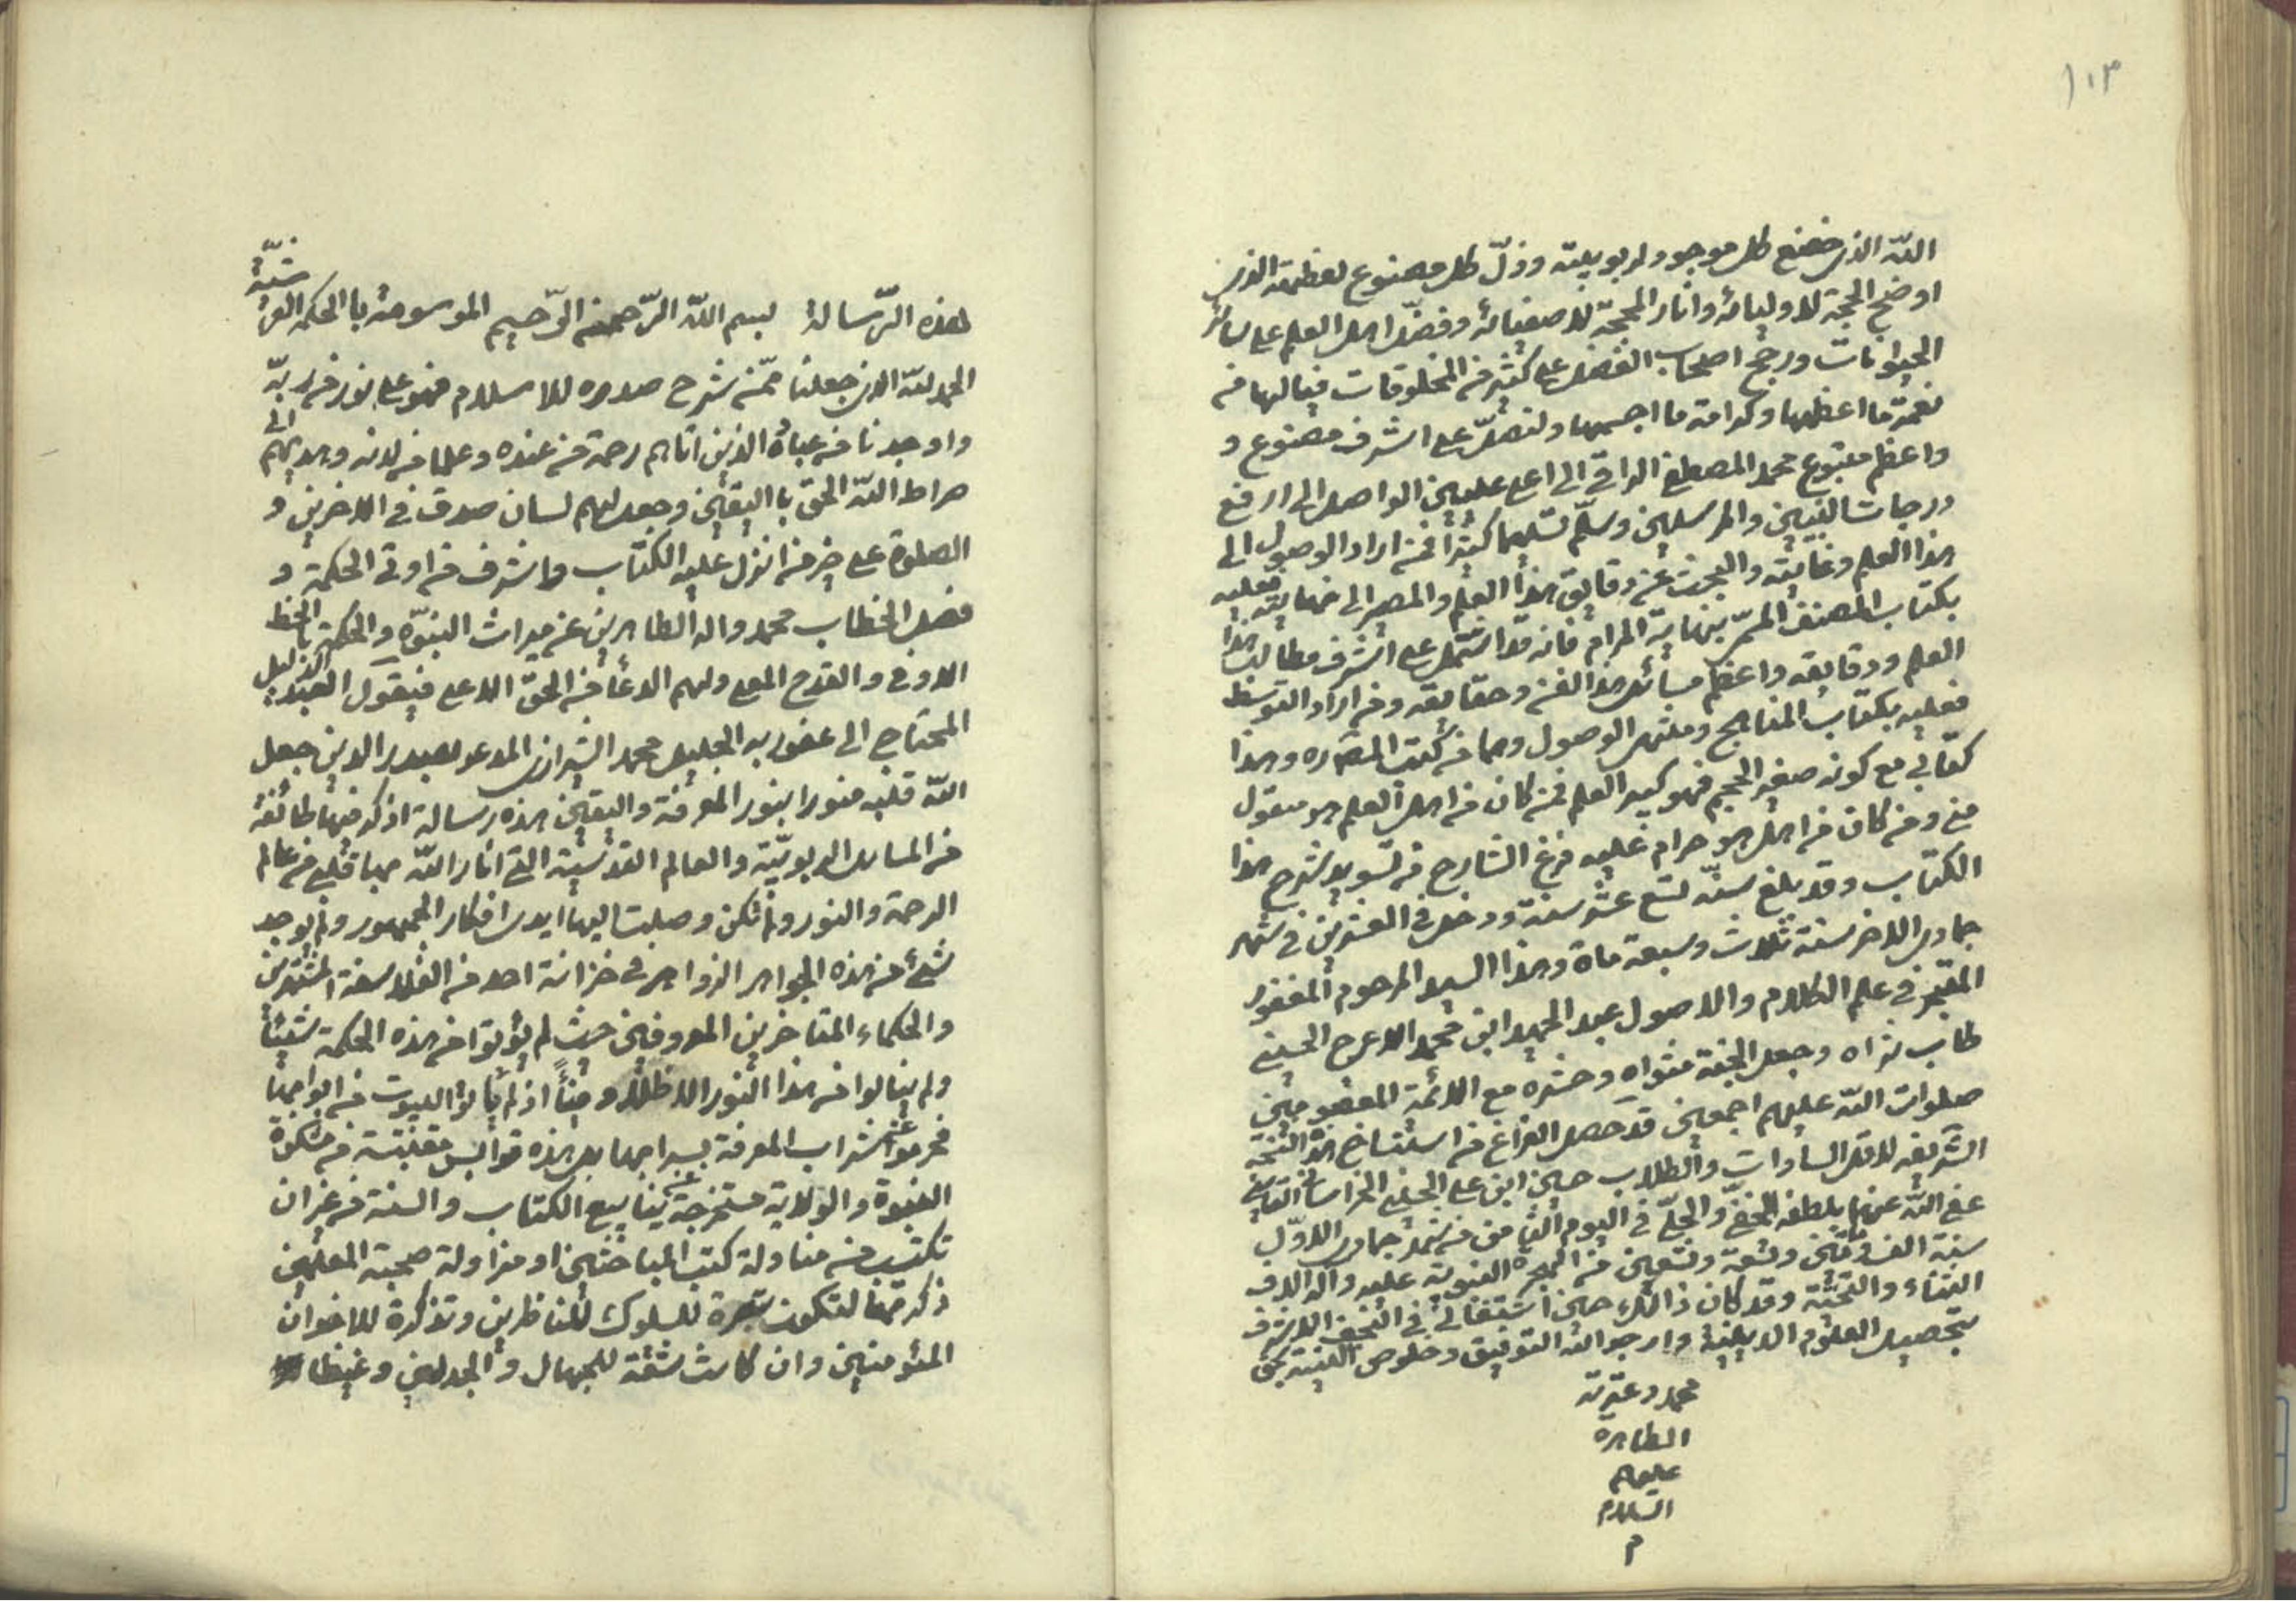 ١٠٣
اللّه الذى خضع كل موجود لربوبيته وذلّ كل مصنوع لعظمته الذى
اوضح الحجة لاوليائه وانار المحجّة لاصفيائه وفضّل اهل العلم على سائر
الحيوانات ورجح اصحاب الفضل على كثير من المخلوقات فيالها من
نعمة ما اعظمها وكرامة ما اجسمها ولنصلّ على اشرف مصنوع و
واعظم متبوع محمد المصطفى الراقى الى اعلى عليين الواصل الى ارفع
درجات النبيين والمرسلين وسلّم تسليما كثيرا فمن اراد الوصول الى
هذا العلم وغايته والبحث عن دقايق هذا العلم والمصير الى نهايته فعليه
بكتاب المصنف المسمّى بنهاية المرام فانه قد اشتمل على اشرف مطالب هذا
العلم ودقايقه واعظم مسائل هذا الفن وحقائقه ومن اراد التوسط
فعليه بكتاب المناهج ومنتهى الوصول وهما من كتب المصنّف وهذا
كتابي مع كونه صغير الحجم فهو كبير العلم فمن كان من اهل العلم هو مبقول
منى ومن كان من اهل هو حرام عليه فرغ الشارح من تسويد شرح هذا
الكتاب وقد بلغ سنّه تسع عشر سنة ودخل فى العشرين فى شهر
جمادى الاخر سنة ثلاث وسبعة ماة وهذا السيد المرحوم المغفور
المتبحّر فى علم الكلام والاصول عبد الحميد ابن محمد الاعرج الحسينى
طاب ثراه وجعل الجنة مثواه وحشره مع الائمة المعصومين
صلوات اللّه عليهم اجمعين قد حصل الفراغ من استنساخ هذه النسخة
الشريفه لاقل السادات والطلاب حسين ابن على الحسينى الخراسانى القاينى
عفى اللّه عنهما بلطفه الخفىّ والجلىّ فى اليوم الثامن من شهر جمادى الاوّل
سنة الف ومأتين وتسعة وتسعين من الهجرة النبوية عليه واله الاف
الثناء والتحيّة وقد كان ذالك حين اشتغالى فى النجف الاشرف
بتحصيل العلوم الدينية وارجو اللّه التوفيق وخلوص النية بحق
محمد وعترته
الطاهره
عليهم
السلام
م
هذه الرّسالة بسم اللّه الرّحمن الرّحيم الموسومة با الحكمة العرشيّة
الحمد للّه الذى جعلنا ممّن شرح صدره للاسلام فهو على نور من ربّه
واوجدنا من عباده الذين اتاهم رحمة من عنده وعلما من لدنه وهديهم الى
صراط اللّه الحق با اليقين وجعل لهم لسان صدق فى الاخرين و
الصلوة على خير من انزل عليه الكتاب واشرف من اوتى الحكمة و
فصل الخطاب محمد واله الطاهرين عن ميراث النبوّة والحكمة با الحظ
الاوفى والقدح المعلى ولهم الدعأ من الحقّ الاعلى فيقول العبد الذليل
المحتاج الى عفو ربه الجليل محمد الشيرازى المدعو بصدر الدين جعل
اللّه قلبه منورا بنور المعرفة واليقين هذه رسالة اذكر فيها طائفة
من المسائل الربوبيّة والعالم القدسيّة التى انار اللّه بها قلبى من عالم
الرحمة والنور ولم تكن وصلت اليها ايدى افكار الجمهور ولم يوجد
شئ من هذه الجواهر الزواهر فى خزانة احد من الفلاسفة المشهورين
والحكماء المتاخرين المعروفين حيث لم يؤتوا من هذه الحكمة شيئاً
ولم ينالوا من هذا النور الا ظلاّ وفيئاً اذ لم يأتوا البيوت من ابوابها
فحرموا عن شراب المعرفة بسرابها بل هذه قوابس مقتبسة من مشكوة
النبوة والولاية مستخرجة عن ينابيع الكتاب والسنة من غير ان
تكتسب من مناولة كتب المباحثين او مزاولة صحبة المعلّمين
ذكرتها لتكون تبصرة للسلوك للناظرين وتذكرة للاخوان
المؤمنين وان كانت شنعة للجهال والجدليين وغيظا